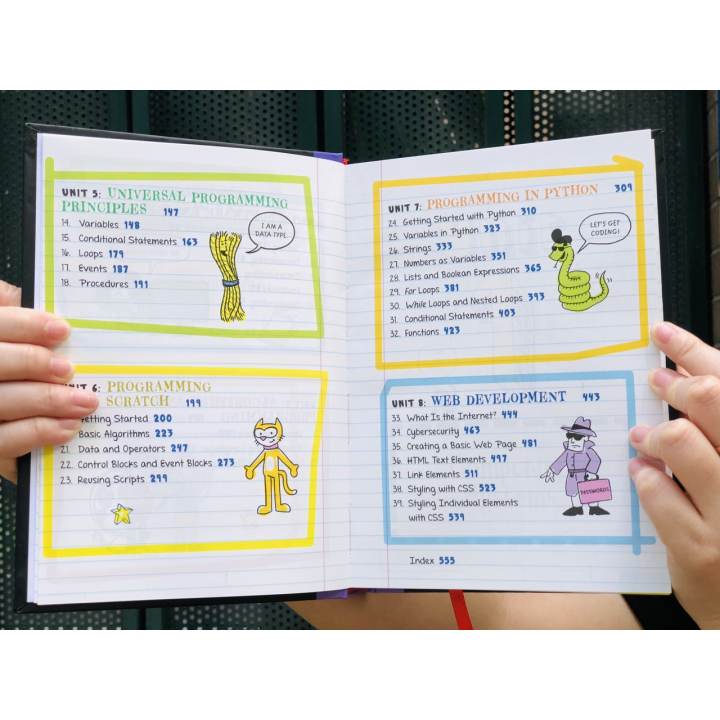 UNIT 5: UNIVERSAL PROGRAMMING
PRINCIPLES 147
14. Variables 148
15. Conditional Statements 163
16. Loops 179
17. Events 187
18. Procedures 191
I AM A
DATA TYPE.
6: PROGRAMMING
SCRATCH 199
Getting Started 200
Basic Algorithms 223
21. Data and Operators 247
22. Control Blocks and Event Blocks 273
23. Reusing Scripts 299
UNIT 7: PROGRAMMING IN PYTHON 309
24. Getting Started with Python 310
25. Variables in Python 323
26. Strings 333
27. Numbers as Variables 351
28. Lists and Boolean Expressions 365
29. For Loops 381
30. While Loops and Nested Loops 393
31. Conditional Statements 403
32. Functions 423
LET'S GET
CODING!
UNIT 8: WEB DEVELOPMENT 443
33. What Is the Internet? 444
34. Cybersecurity 463
35. Creating a Basic Web Page 481
36. HTML Text Elements 497
37. Link Elements 511
38. Styling with CSS 523
39. Styling Individual Elements
with CSS 539
PASSWORDS
Index 555